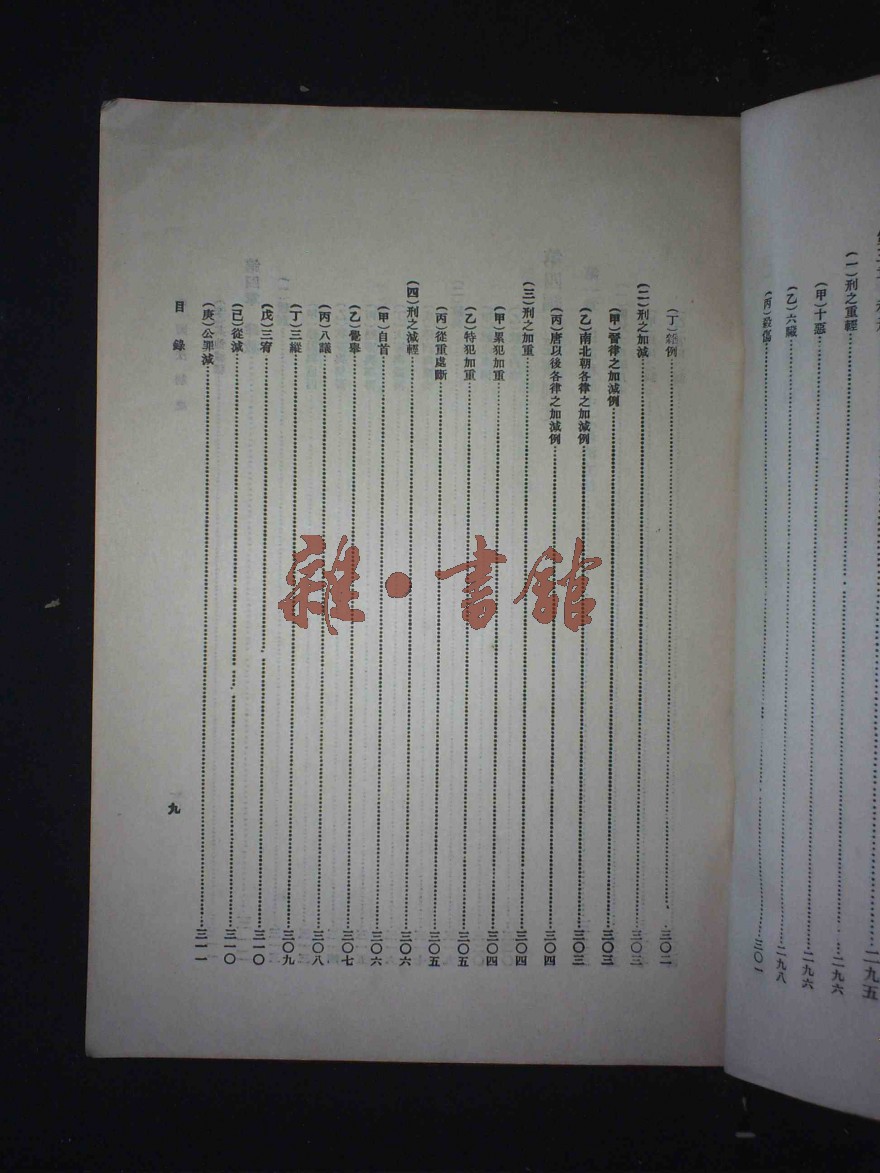 (一)刑之重輕……二九六
(甲)十惡……二九六
(乙)六贓……二九八
(丙)殺傷……三〇一
(丁)雜例……三〇二
(二)刑之加減……三〇三
(甲)晉律之加減例……三〇三
(乙)南北朝各律之加減例……三〇三
(丙)唐以後各律之加減例……三〇四
(三)刑之加重……三〇四
(甲)累犯加重……三〇四
(乙)特犯加重……三〇五
(丙)從重處斷……三〇五
(四)刑之減輕……三〇六
(甲)自首……三〇六
(乙)覺舉……三〇七
(丙)八議……三〇八
(丁)三縱……三〇九
(戊)三宥……三一〇
(己)從減……三一〇
(庚)公罪減……三一一
目錄
九
雜·書館